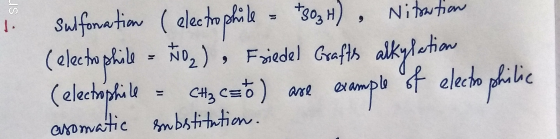 1. Sulfonation ( electrophile = ⁺SO3H) , Nitration
(electrophile = N⁺O2) , Friedel Crafts alkylation
(electrophile = CH3C≡O⁺) are example of electrophilic
aromatic substitution.